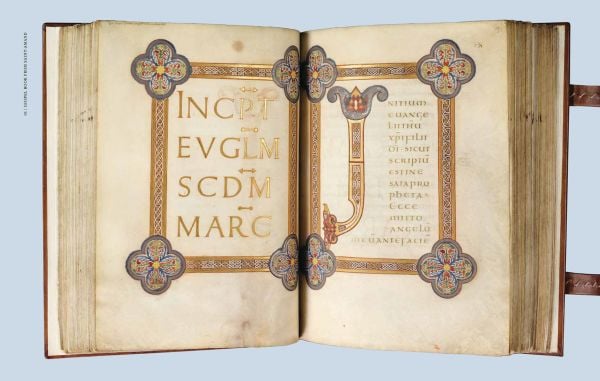 GOSPEL BOOK FROM SAINT-AMAND
INCPT
EVGLM
SCDM
MARC
I
NITIUM
EUANGE
LII IHU
XPI FILII
DI · SICUT
SCRIPTŪ
EST IN E
SAIA PRO
PHETA ·
ECCE
MITTO
ANGELŪ
MEŪ ANTE FACIĒ